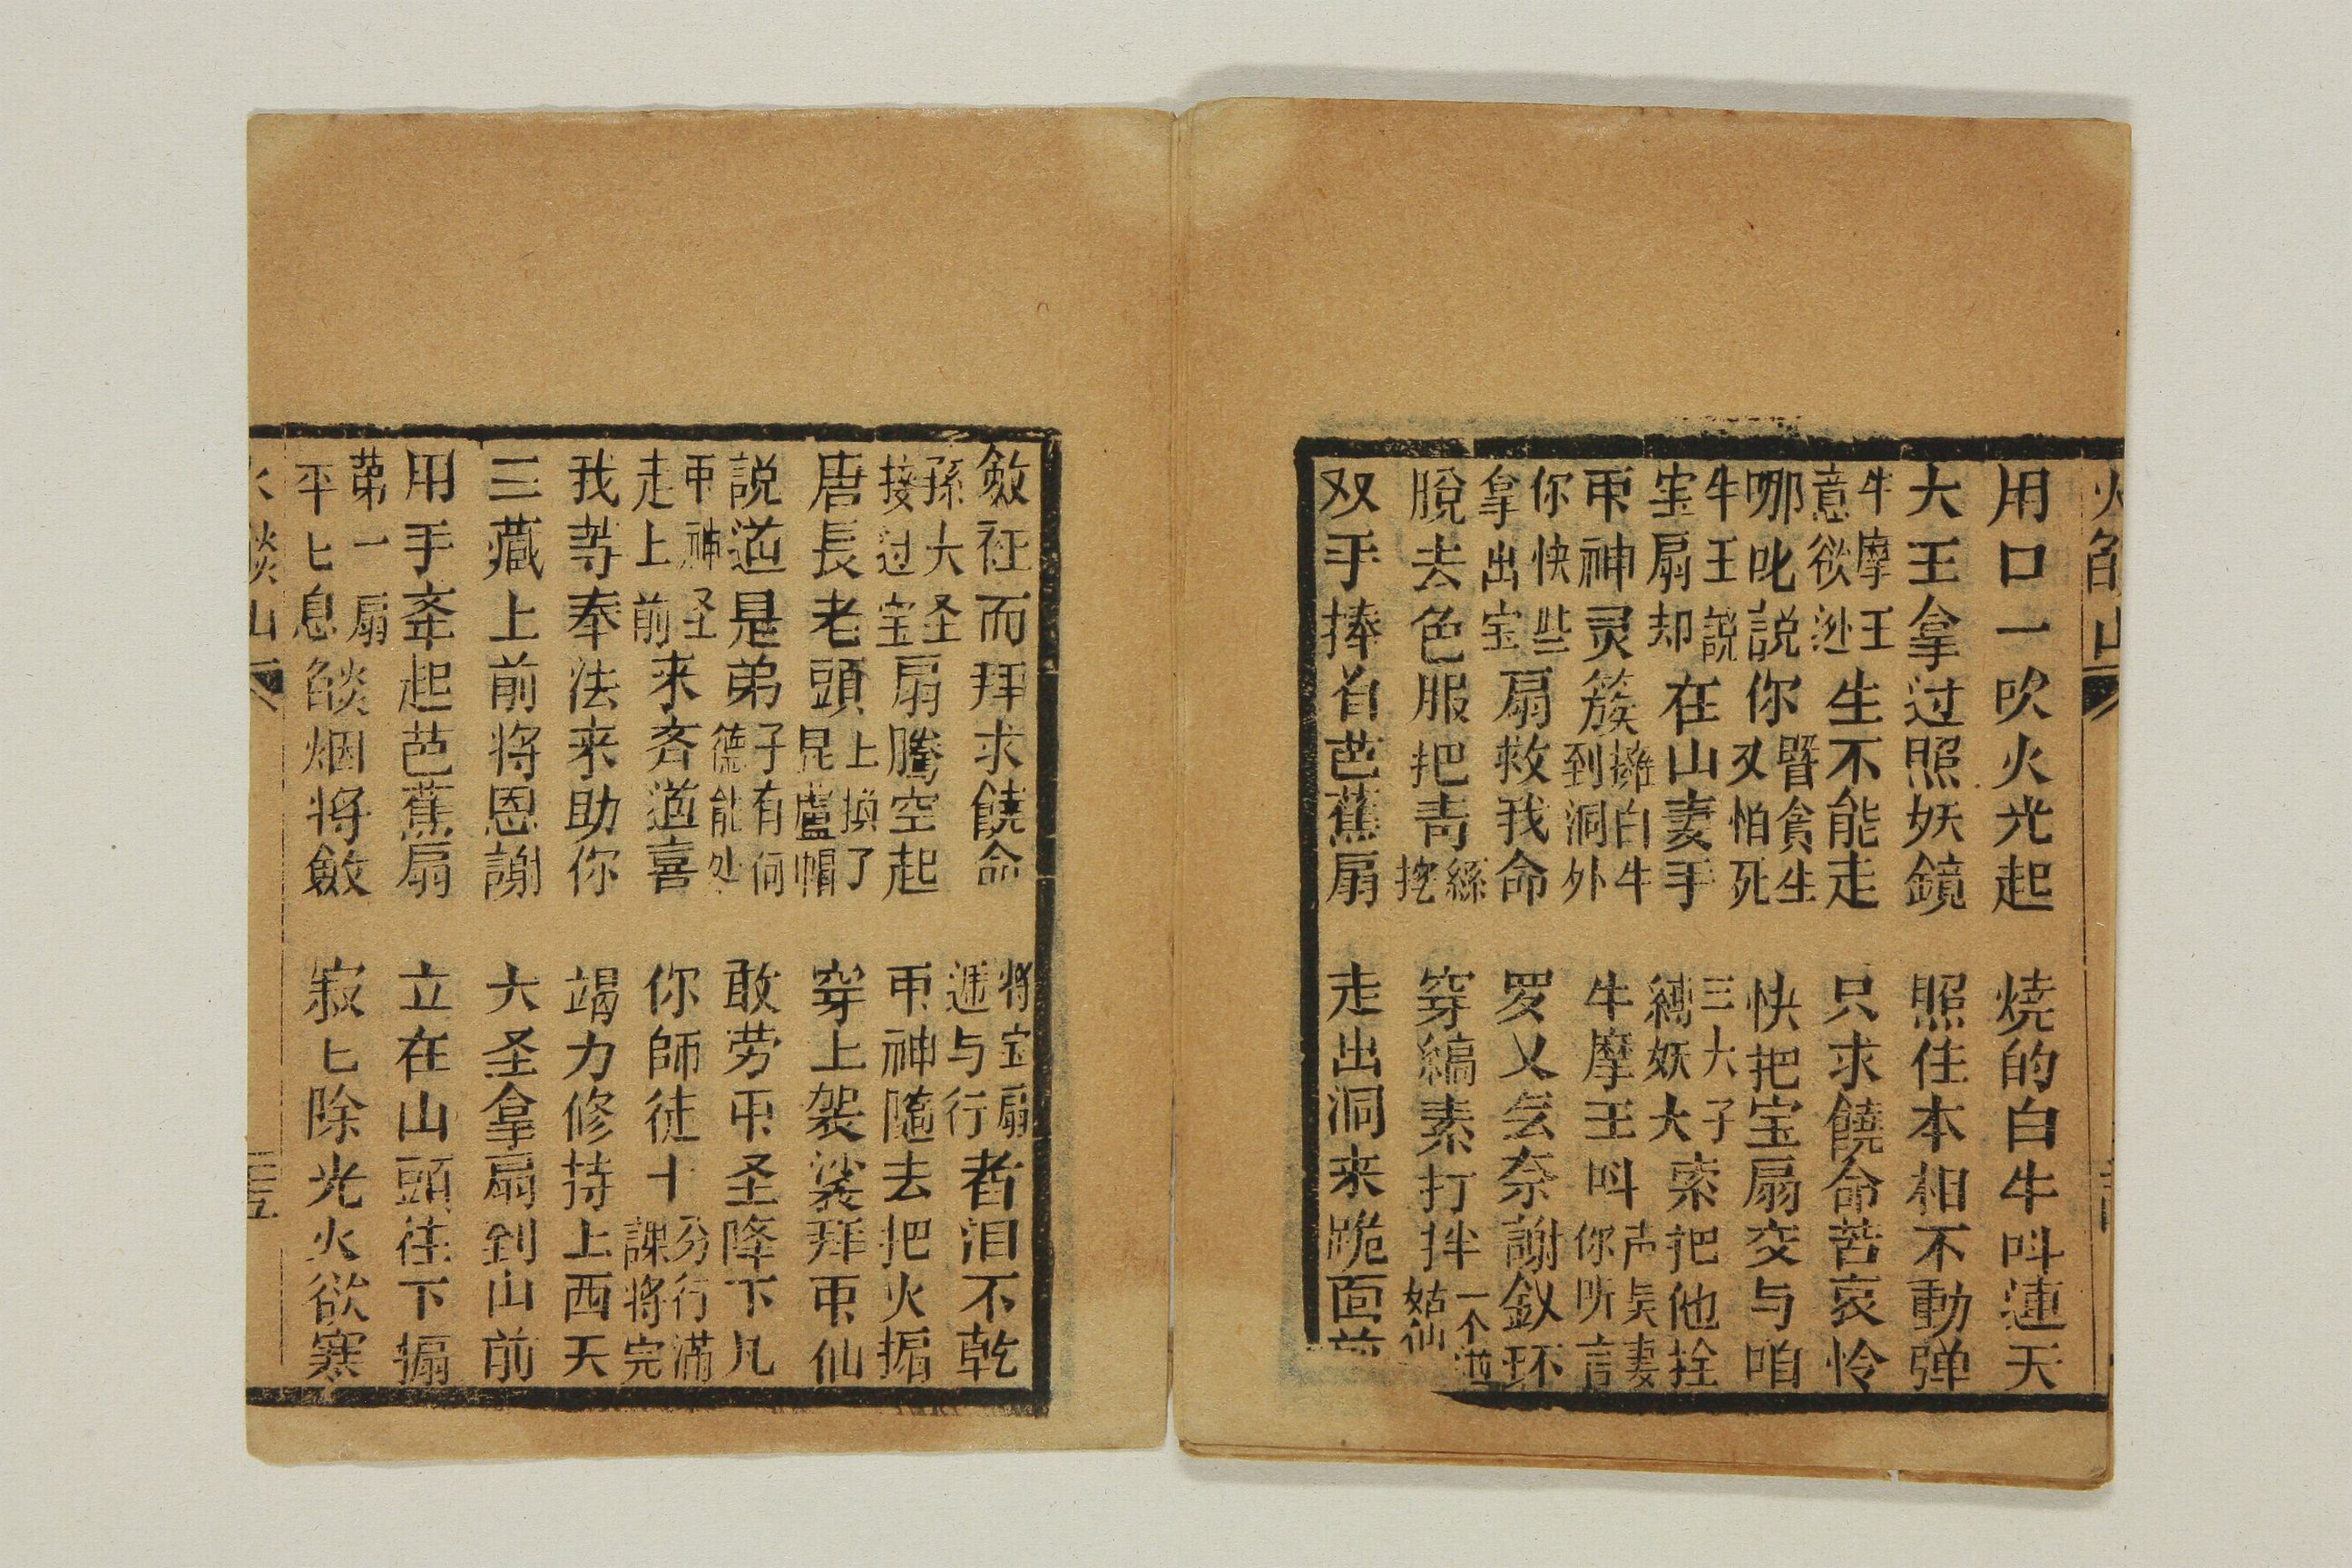 火焰山
用口一吹火光起 燒的白牛叫連天
大王拿过照妖鏡 照住本相不動弹
牛摩王意欲逃生不能走 只求饒命苦哀怜
哪叱説你暨貪生又怕死 快把宝扇交与咱
牛王説宝扇却在山妻手 三大子縛妖大索把他拴
帀神灵簇擁白牛到洞外 牛摩王叫声吳妻你听言
你快些拿出宝扇救我命 罗乂奈謝釵环
脫去色服把青絲挽 穿縞素打拌一个道姑仙
双手捧着芭蕉扇 走出洞来跪面前
斂衽而拜求饒命 将宝扇逓与行者泪不乾
孫大圣接过宝扇騰空起 帀神隨去把火搧
唐長老頭上換了昆盧帽 穿上袈裟拜帀仙
説道是弟子有何德能处 敢劳帀圣降下凡
帀神圣走上前来斉道喜 你師徒十分行滿課将完
我等奉法来助你 竭力修持上西天
三藏上前将恩謝 大圣拿扇到山前
用手牵起芭蕉扇 立在山頭往下搧
第一扇平匕息焰烟将斂 寂匕除光火欲寒
火焰山 二五